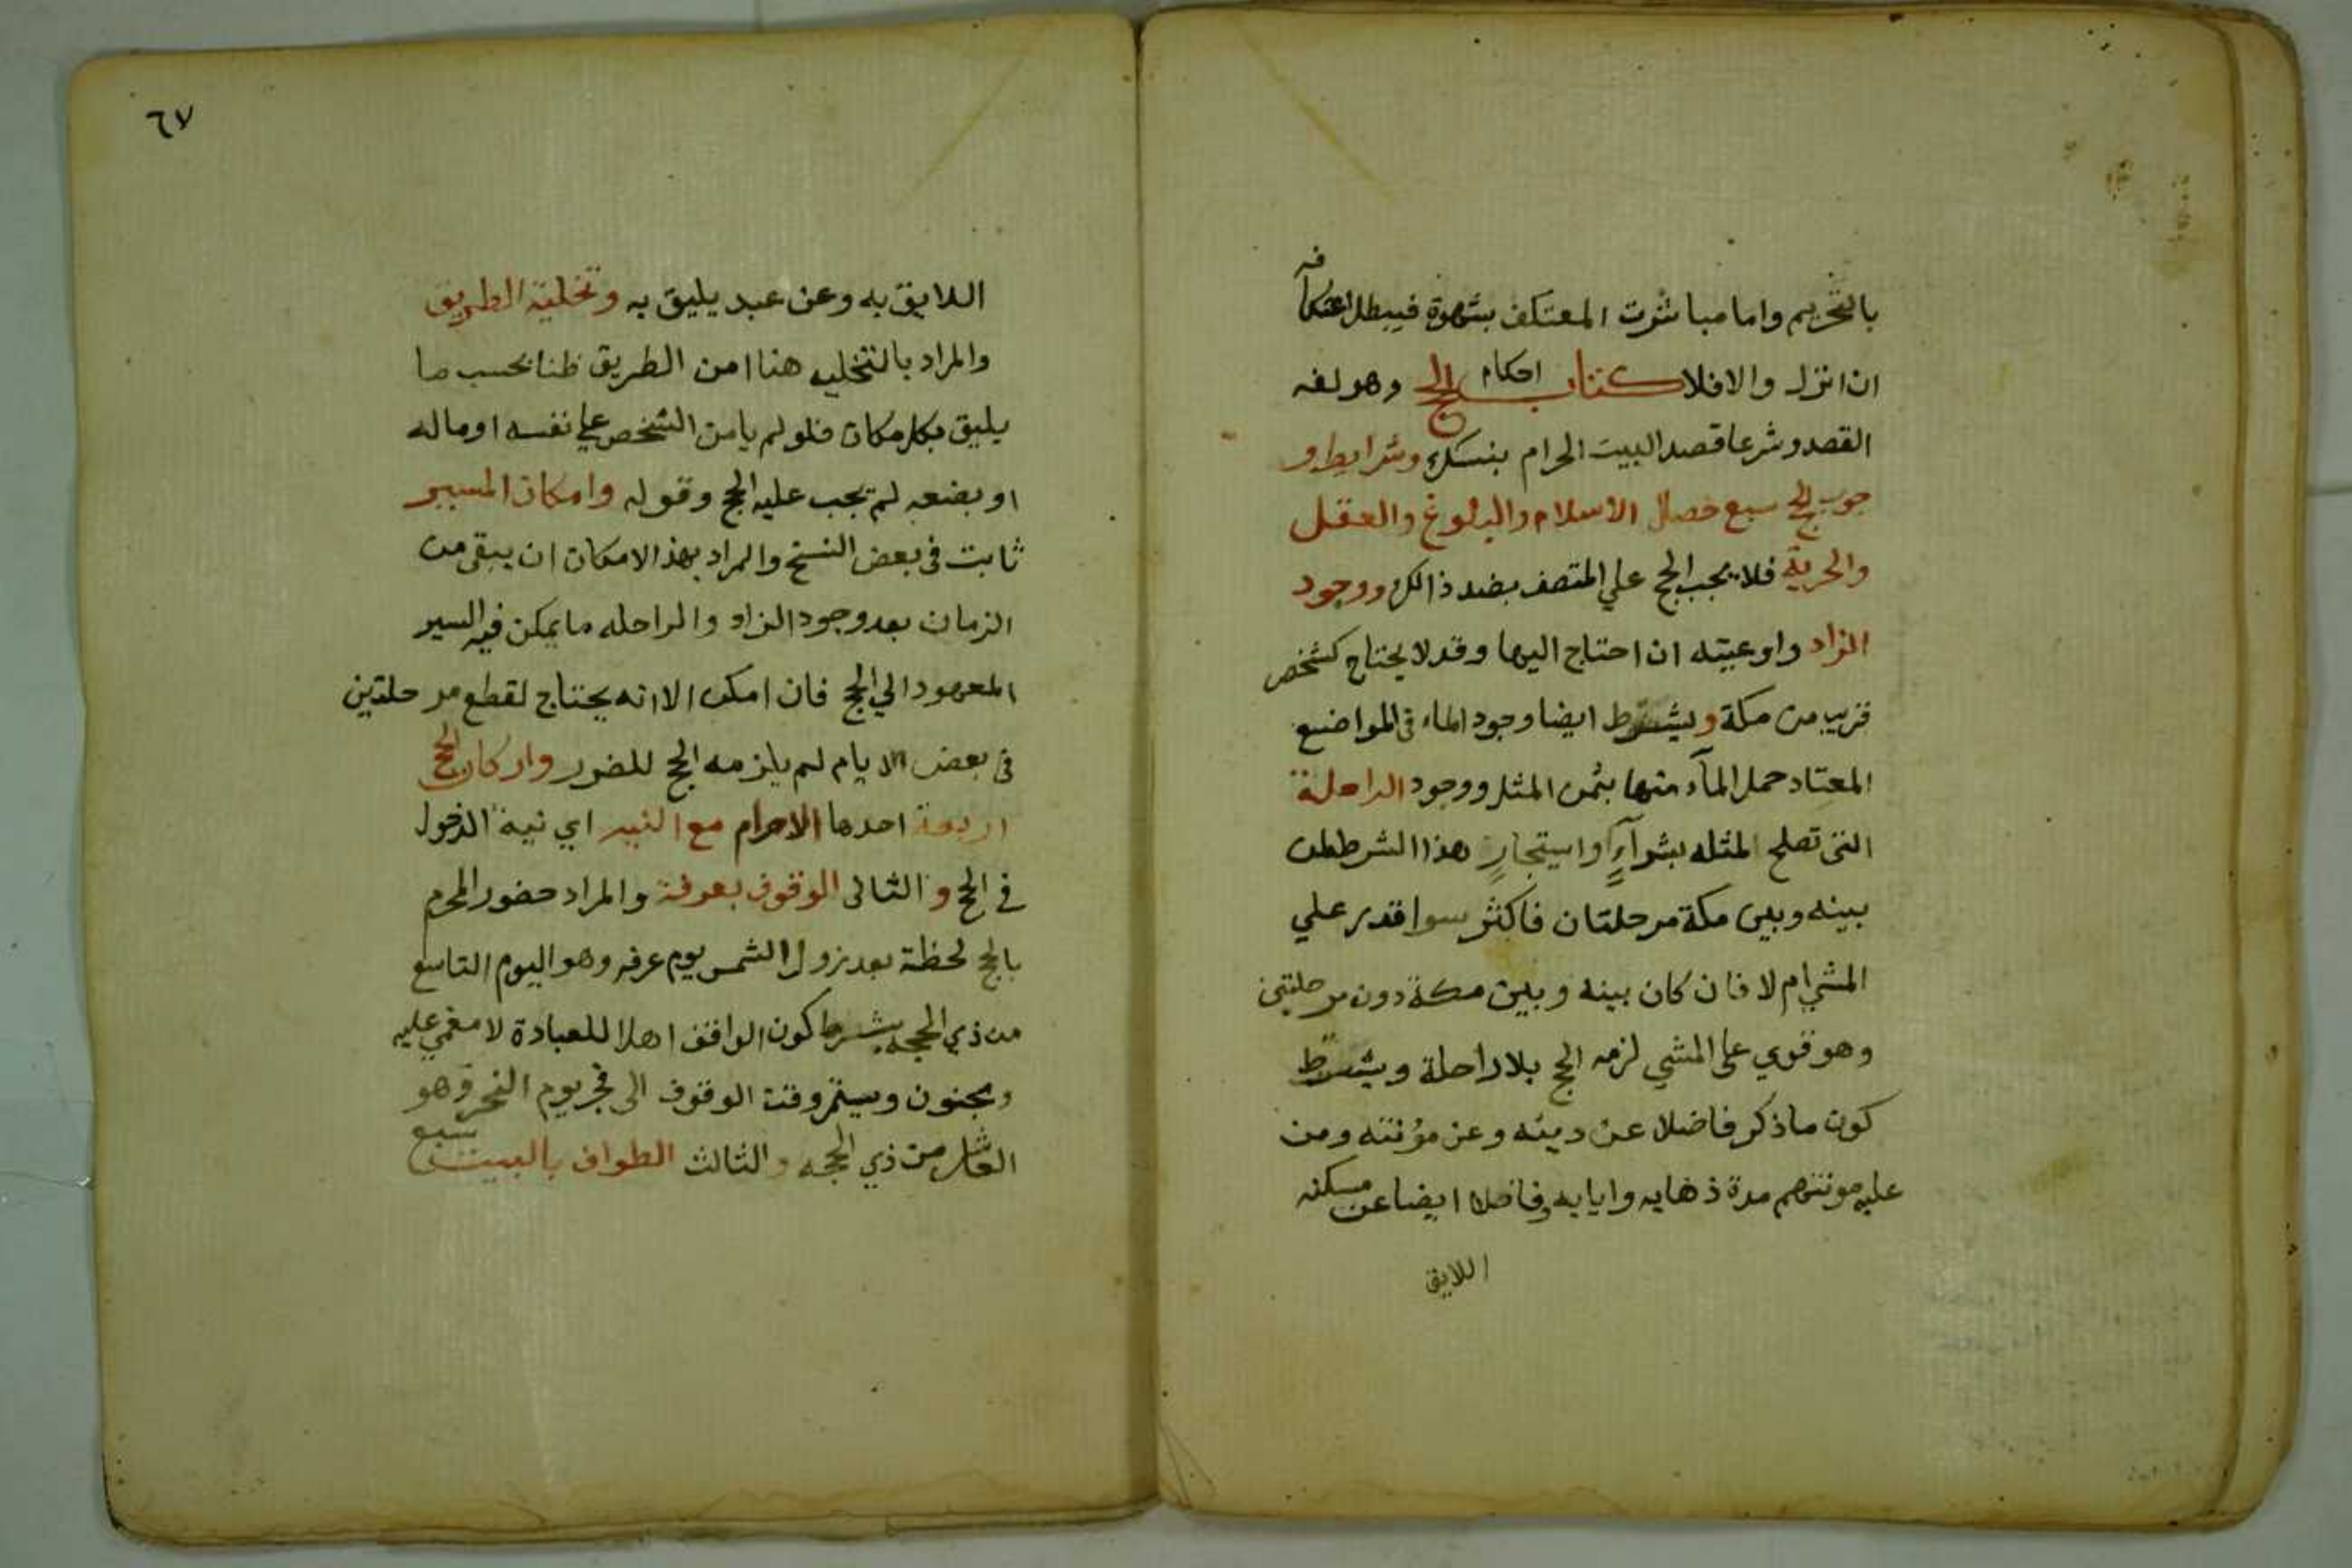 بالتحريم واما مباشرت المعتكف بشهوة فيبطل اعتكافه
ان انزل والا فلا كتاب احكام الحج وهو لغه
القصد وشرعا قصد البيت الحرام بنسك وشرايط و
جوب الحج سبع خصال الاسلام والبلوغ والعقل
والحرية فلا يجب الحج علي المتصف بضد ذالك ووجود
الزاد واوعيته ان احتاج اليها وقد لا يحتاج كشخص
قريب من مكة ويشترط ايضا وجود الماء في المواضع
المعتاد حمل المآء منها بثمن المثل ووجود الراحلة
التي تصلح لمثله بشرآءٍ او استيجارٍ هذا الشرط لمن
بينه وبين مكة مرحلتان فاكثر سوا قدر علي
المشي ام لا فان كان بينه وبين مكة دون مرحلتين
وهو قوي على المشي لزمه الحج بلا راحلة ويشترط
كون ما ذكر فاضلا عن دينه وعن مؤنته ومن
عليه مونتهم مدة ذهابه وايابه وفاضلا ايضا عن مسكنه
اللايق
٦٧
اللايق به وعن عبد يليق به وتخلية الطريق
والمراد بالتخليه هنا امن الطريق ظنا بحسب ما
يليق بكل مكان فلو لم يامن الشخص علي نفسه او ماله
او بضعه لم يجب عليه الحج وقوله وامكان المسير
ثابت في بعض النسخ والمراد بهذ الامكان ان يبقى من
الزمان بعد وجود الزاد والراحله ما يمكن فيه السير
المعهود الي الحج فان امكن الا انه يحتاج لقطع مرحلتين
في بعض الايام لم يلزمه الحج للضرر واركان الحج
اربعة احدها الاحرام مع النيه اي نية الدخول
في الحج و الثاني الوقوف بعرفة والمراد حضور المحرم
بالحج لحظة بعد زول الشمس يوم عرفه وهو اليوم التاسع
من ذي الحجه بشرط كون الواقف اهلا للعبادة لا مغمي عليه
ومجنون ويستمر وقت الوقوف الى فجر يوم النحر وهو
العاشر من ذي الحجه و الثالث الطواف بالبيت سبع